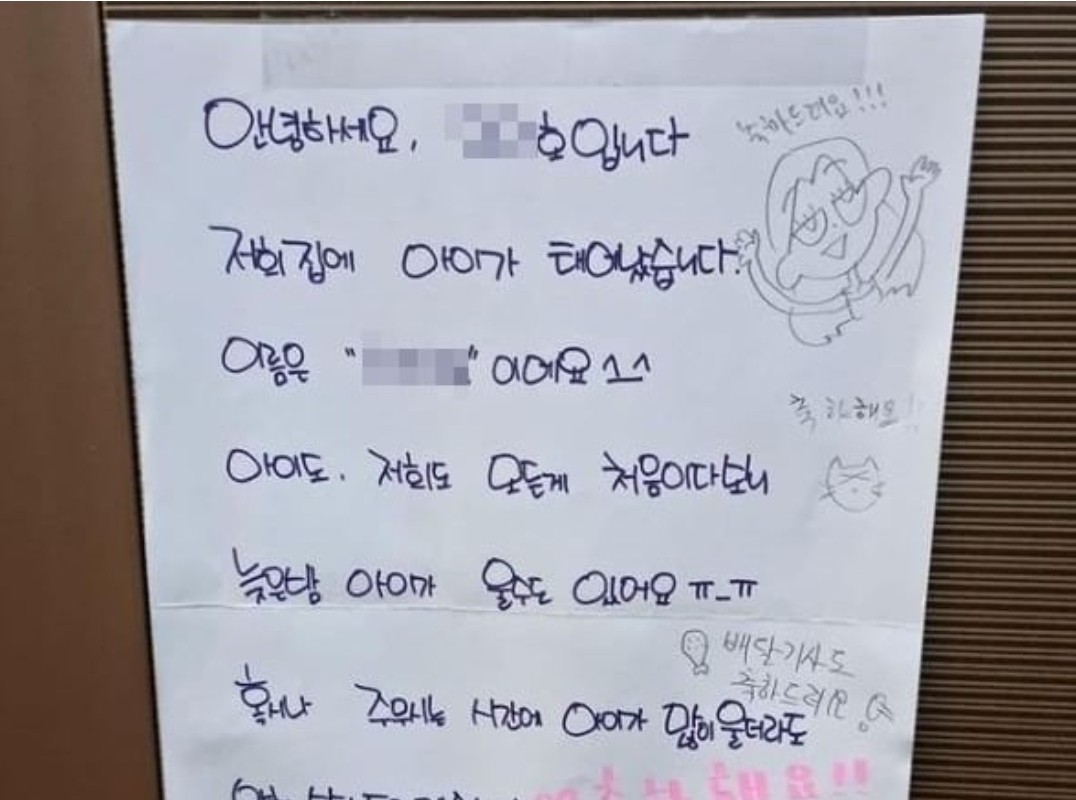 안녕하세요, 호입니다
축하드려요!!!
저희 집에 아이가 태어났습니다.
이름은 "" 이에요^_^
축하해요!!
아이도. 저희도 모든게 처음이다보니
늦은밤 아이가 울수도 있어요 ㅠ_ㅠ
배달기사도
축하드려요
혹시나 주무시는 시간에 아이가 많이 울더라도
축하해요!!